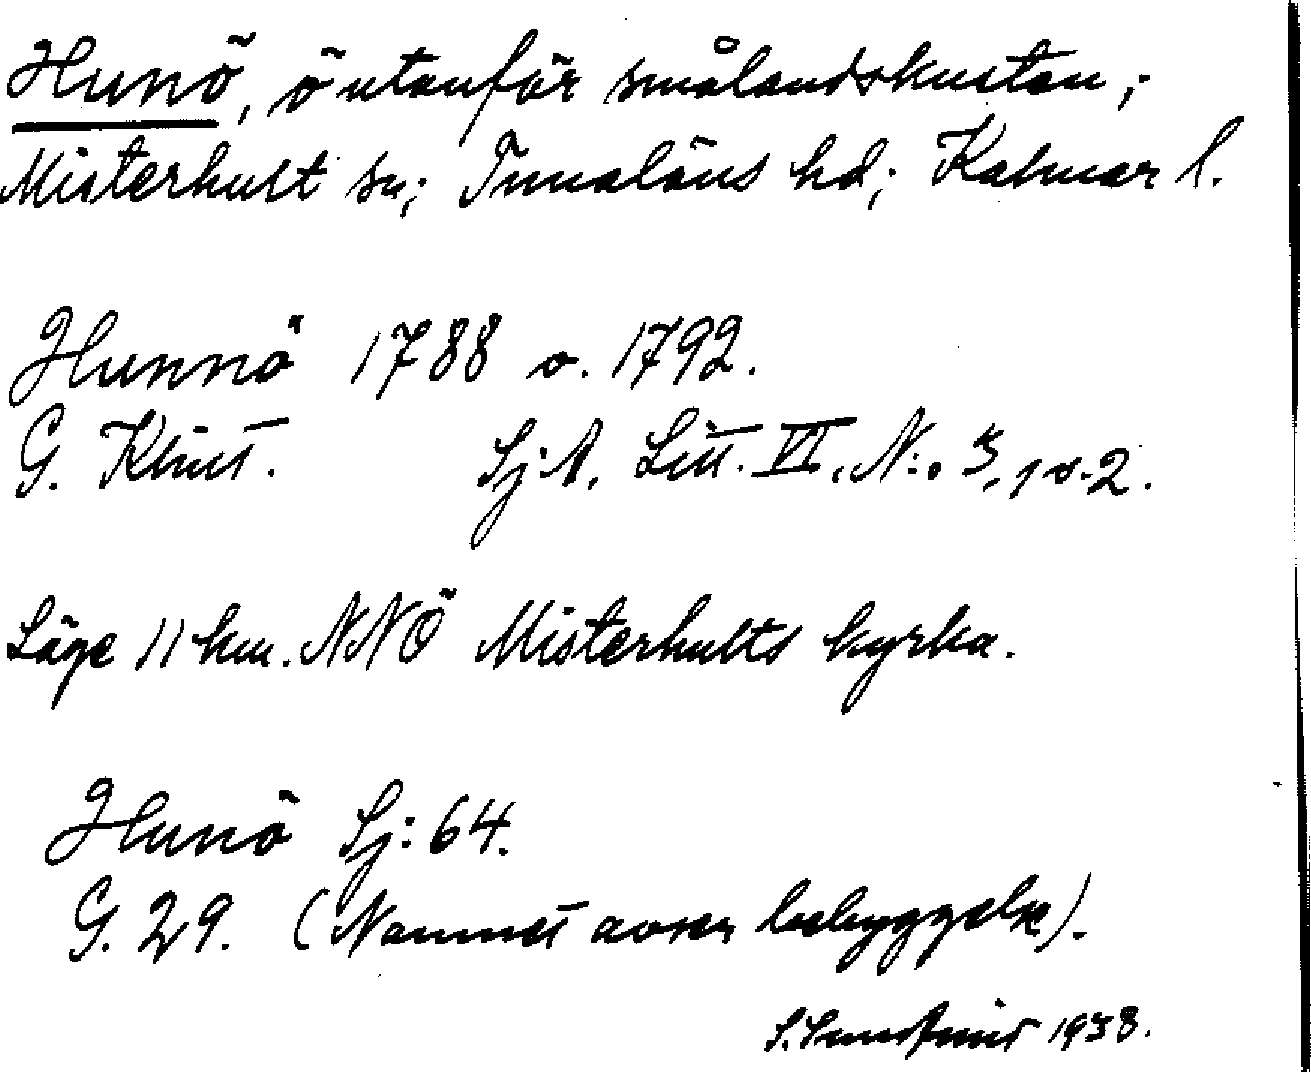 Hunö, ö utanför smålandskusten;
Misterhult sn; Tunaläns hd; Kalmar l.
Hunnö 1788 o. 1792.
G. Klint. Sj:A, Litt. VI, N:o 3, 1 o. 2.
Läge 11 km. NNÖ Misterhults kyrka.
Hunö Sj: 64.
G. 29. (Namnet avser bebyggelse).
S. 1938.